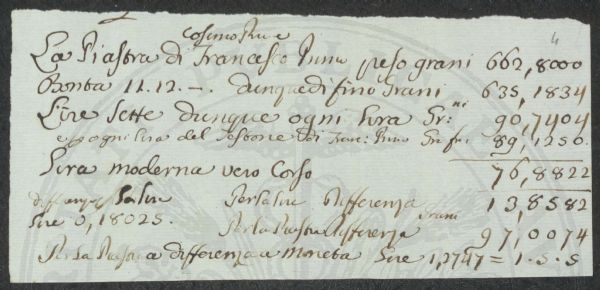 Cosimo P.mo e
La Piastra di Francesco Primo peso grani 662,8000
Bontà 11.12.—. dunque di fino Grani 635,1834
Lire sette dunque ogni lira Gr:ni 90,7404
e ogni lira del Testone di Franc: Primo 89,1250.
Lira moderna vero Corso 76,8822
differenza Sa Lire Per la Lire Differenza 13,8582
Lire 0,18025. Per la Piastra differenza grani 97,0074
Per la Piastra a differenza a Moneta Lire 1,2747 = 1.5.5
4